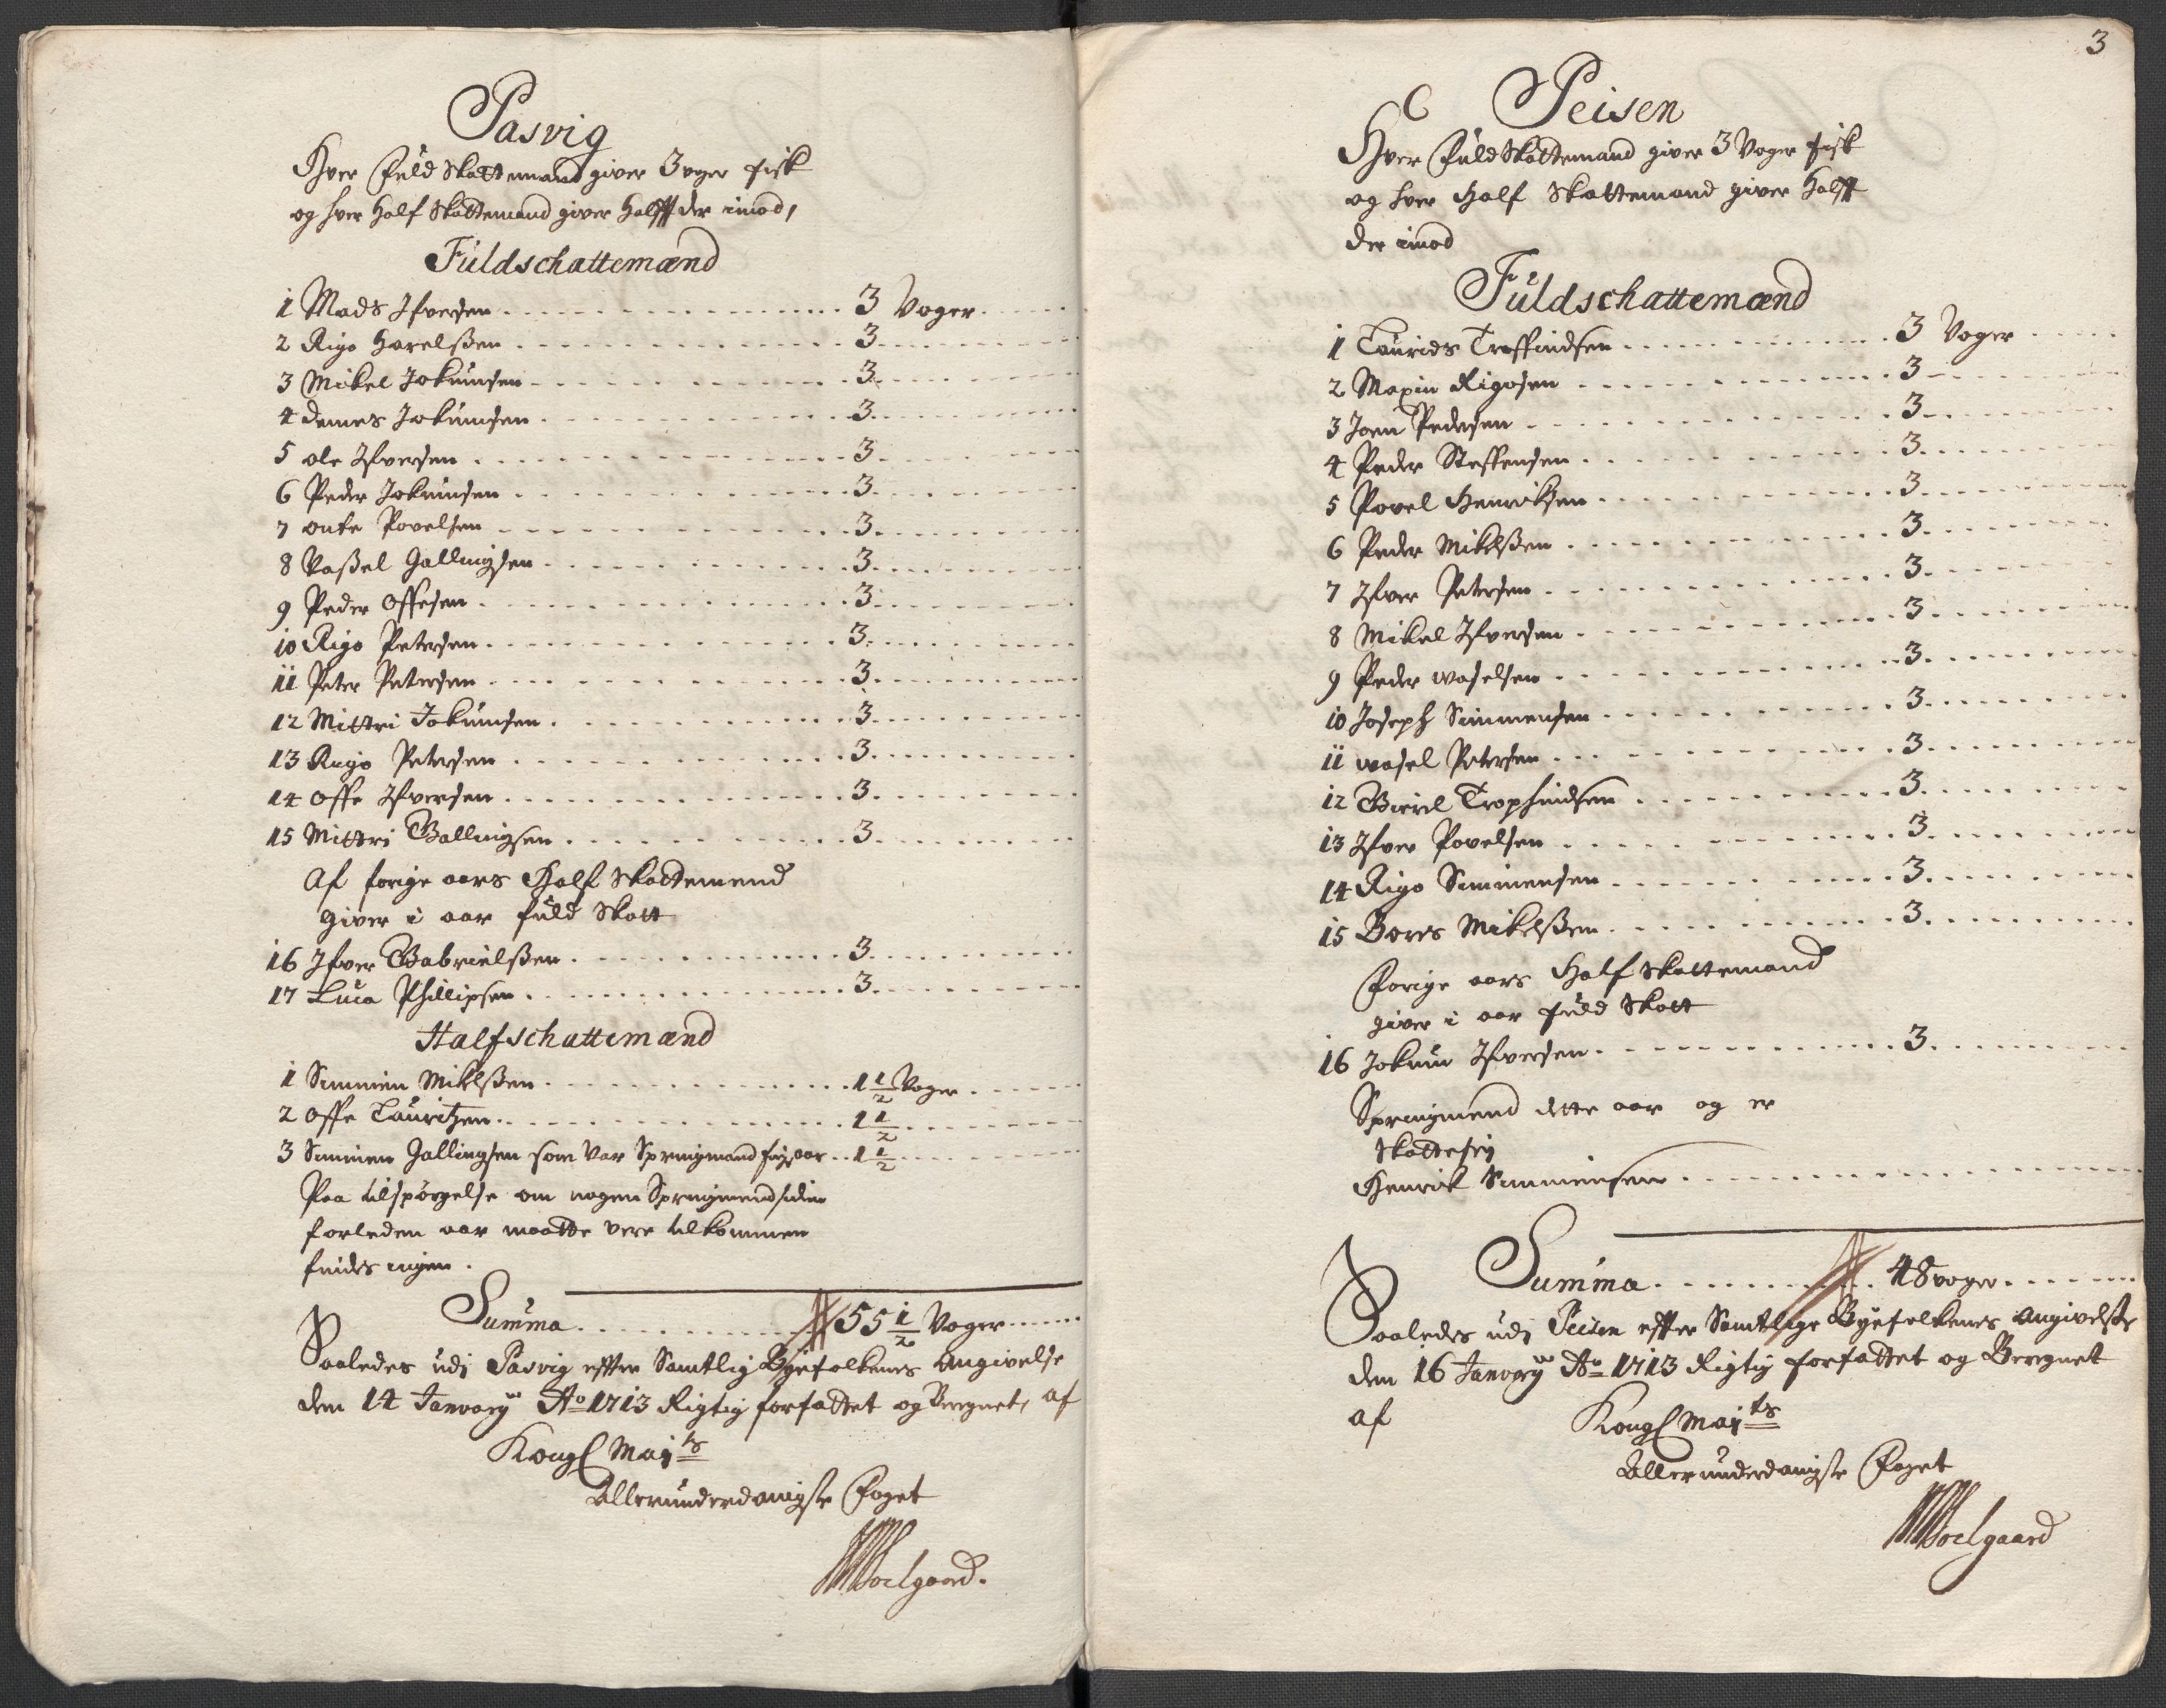 Pasvig
Hver Fuld Skattemand giver 3 voger fisk
og hver Half Skattemand giver Halfft der imod,
Fuldschattemænd
1 Mads Ifversen 3 Voger
2 Rigo Harelssen 3
3 Mikel Jokumsen 3
4 Demes Jokumsen 3
5 Ole Ifversen 3
6 Peder Jokumsen 3
7 Onte Povelsen 3
8 Vassel Gallingsen 3
9 Peder Offesen 3
10 Rigo Petersen 3
11 Peter Petersen 3
12 Mittri Jokumsen 3
13 Rigo Petersen 3
14 Offe Ifversen 3
15 Mittri Gallingsen 3
Af forige aars Half Skattemend
giver i aar fuld Skatt
16 Ifver Gabrielssen 3
17 Luca Phillipsen 3
Halfschattemænd
1 Simmen Mikelssen 1 1/2 Voger
2 Offe Lauritzen 1 1/2
3 Simmen Gallingsen som var Springmand aar 1 1/2
Paa tilspørgelse om nogen Springmend siden
forleden aar maatte vere tilkommen
findes ingen.
Summa 55 1/2 Voger
Saaledes udj Pasvig effter Samtlig Byefolkenes Angivelse
den 14 January Ao 1713 Rigtig forfattet og Beregnet, af
Kongl Mayts
Allerunderdanigste Foget
Soelgaard.
3
Peisen
Hver Fuld Skattemand giver 3 Voger fisk
og hver Half Skattemand giver Halfft
der imod
Fuldschattemænd
1 Laurids Troffindsen 3 Voger
2 Maxin Rigosen 3
3 Joen Pedersen 3
4 Peder Steffensen 3
5 Povel Henriksen 3
6 Peder Mikelssen 3
7 Ifver Petersen 3
8 Mikel Ifversen 3
9 Peder Waselsen 3
10 Joseph Simmensen 3
11 Wasel Petersen 3
12 Trophindsen 3
13 Ifver Povelsen 3
14 Rigo Simmensen 3
15 Bores Mikelssen 3
Forige aars Half Skattemand
giver i aar fuld Skatt
16 Jokum Ifversen 3
Springmend dette aar og er
Skattefrj
Henrik Simmensen
Summa 48 voger
Saaledes udj Peisen effter Samtlige Byefolkenes Angivelse
den 16 January Ao 1713 Rigtig forfattet og Beregnet
af Kongl Mayts
Allerunderdanigste Foget
Soelgaard